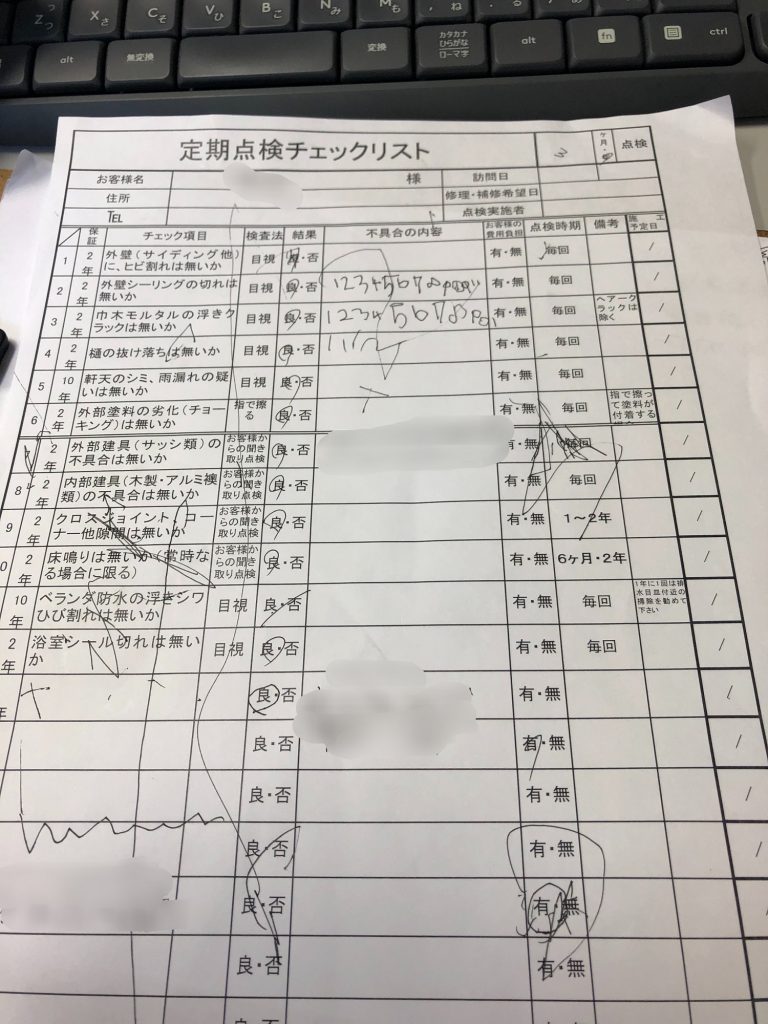 Z
つ
X
さ
C
そ
V
ひ
B
こ
N
み
M
も
ね
alt
無変換
変換
カタカナ
ひらがな
ローマ字
alt
fn
ctrl
定期点検チェックリスト
3
ケ月・
点検
お客様名 様 訪問日
住所 修理・補修希望日
TEL 点検実施者
保証 チェック項目 検査法 結果 不具合の内容 お客様の費用負担 点検時期 備考 施工予定日
1 2年 外壁(サイディング他)に、ヒビ割れは無いか 目視 良・否 有・無 毎回 /
2 2年 外壁シーリングの切れは無いか 目視 良・否 有・無 毎回 /
3 2年 巾木モルタルの浮きクラックは無いか 目視 良・否 有・無 毎回 ヘアークラックは除く /
4 2年 樋の抜け落ちは無いか 目視 良・否 有・無 毎回 /
5 10年 軒天のシミ、雨漏れの疑いは無いか 目視 良・否 有・無 毎回 /
6 2年 外部塗料の劣化(チョーキング)は無いか 指で擦る 良・否 有・無 毎回 指で擦って塗料が付着する /
2年 外部建具(サッシ類)の不具合は無いか お客様からの聞き取り点検 良・否 有・無 毎回 /
8 2年 内部建具(木製・アルミ襖類)の不具合は無いか お客様からの聞き取り点検 良・否 有・無 毎回 /
9 2年 クロスジョイント、コーナー他隙間は無いか お客様からの聞き取り点検 良・否 有・無 1～2年 /
0 2年 床鳴りは無いか(常時なる場合に限る) お客様からの聞き取り点検 良・否 有・無 6ヶ月・2年 /
10年 ベランダ防水の浮きシワひび割れは無いか 目視 良・否 有・無 毎回 1年に1回は排水目皿付近の掃除を勧めて下さい /
2年 浴室シール切れは無いか 目視 良・否 有・無 毎回 /
年 良・否 有・無 /
良・否 有・無 /
良・否 有・無 /
良・否 有・無 /
良・否 有・無 /
良・否 有・無 /